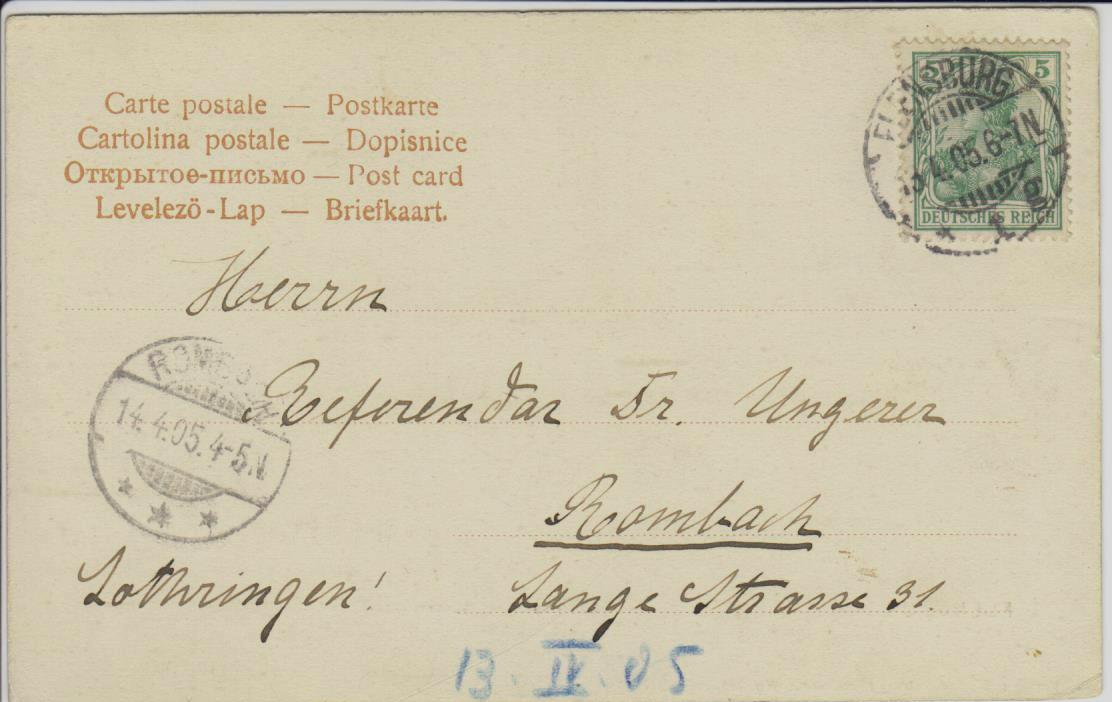 Carte postale — Postkarte
Cartolina postale — Dopisnice
Открытое-письмо — Post card
Levelező-Lap — Briefkaart.
5 5
DEUTSCHES REICH
FLENSBURG
13.4.05.6-7N.
* 1 g
Herrn
ROMBACH
14.4.05.4-5N.
Referendar Dr. Ungerer
Rombach
Lothringen! Lange Strasse 31.
13. IV. 05